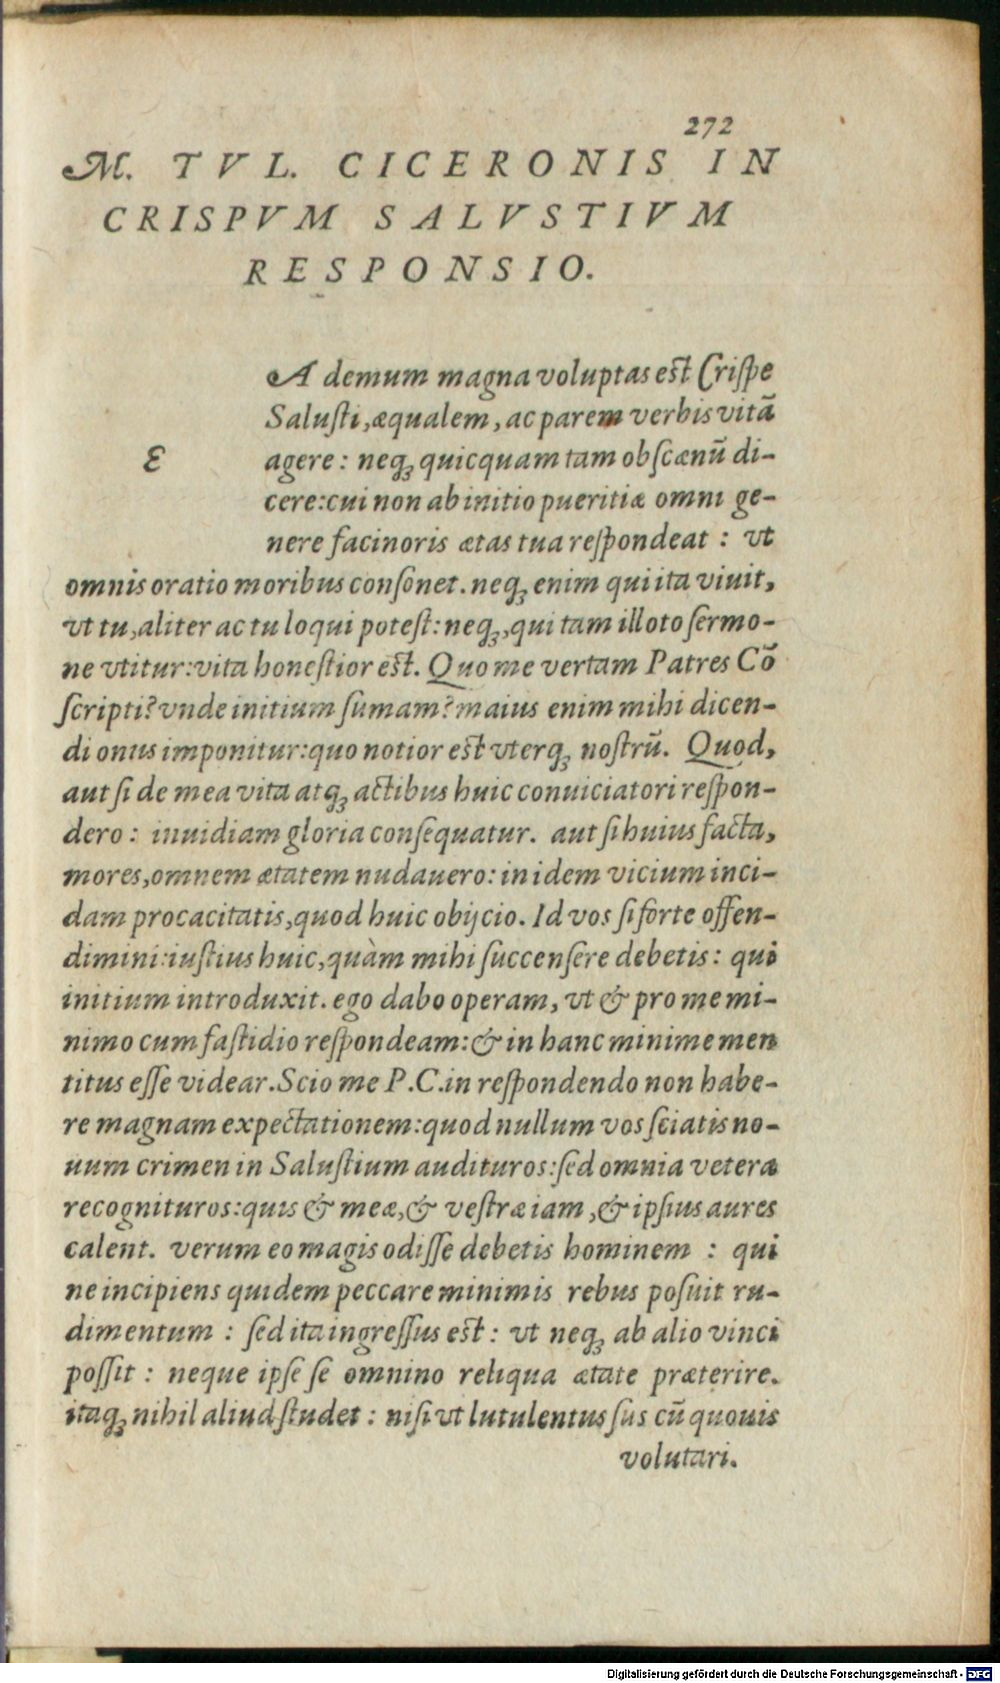 272
M. TVL. CICERONIS IN
CRISPVM SALVSTIVM
RESPONSIO.
A demum magna voluptas est Crispe
Salusti, æqualem, ac parem verbis vitā
ε agere: neqꝫ quicquam tam obscænū di-
cere: cui non ab initio pueritiæ omni ge-
nere facinoris ætas tua respondeat : vt
omnis oratio moribus consonet. neqꝫ enim qui ita viuit,
vt tu, aliter ac tu loqui potest: neqꝫ, qui tam illoto sermo-
ne vtitur: vita honestior est. Quo me vertam Patres Cō
scripti? vnde initium sumam? maius enim mihi dicen-
di onus imponitur: quo notior est vterqꝫ nostrū. Quod,
aut si de mea vita atqꝫ actibus huic conuiciatori respon-
dero: inuidiam gloria consequatur. aut si huius facta,
mores, omnem ætatem nudauero: in idem vicium inci-
dam procacitatis, quod huic obijcio. Id vos si forte offen-
dimini: iustius huic, quàm mihi succensere debetis: qui
initium introduxit. ego dabo operam, vt & pro me mi-
nimo cum fastidio respondeam: & in hanc minime men
titus esse videar. Scio me P.C. in respondendo non habe-
re magnam expectationem: quod nullum vos sciatis no-
uum crimen in Salustium audituros: sed omnia vetera
recognituros: quis & meæ, & vestræ iam, & ipsius aures
calent. verum eo magis odisse debetis hominem : qui
ne incipiens quidem peccare minimis rebus posuit ru-
dimentum : sed ita ingressus est: vt neqꝫ ab alio vinci
possit : neque ipse se omnino reliqua ætate præterire.
itaqꝫ nihil aliud studet : nisi vt lutulentus sus cū quouis
volutari.
Digitalisierung gefördert durch die Deutsche Forschungsgemeinschaft - DFG